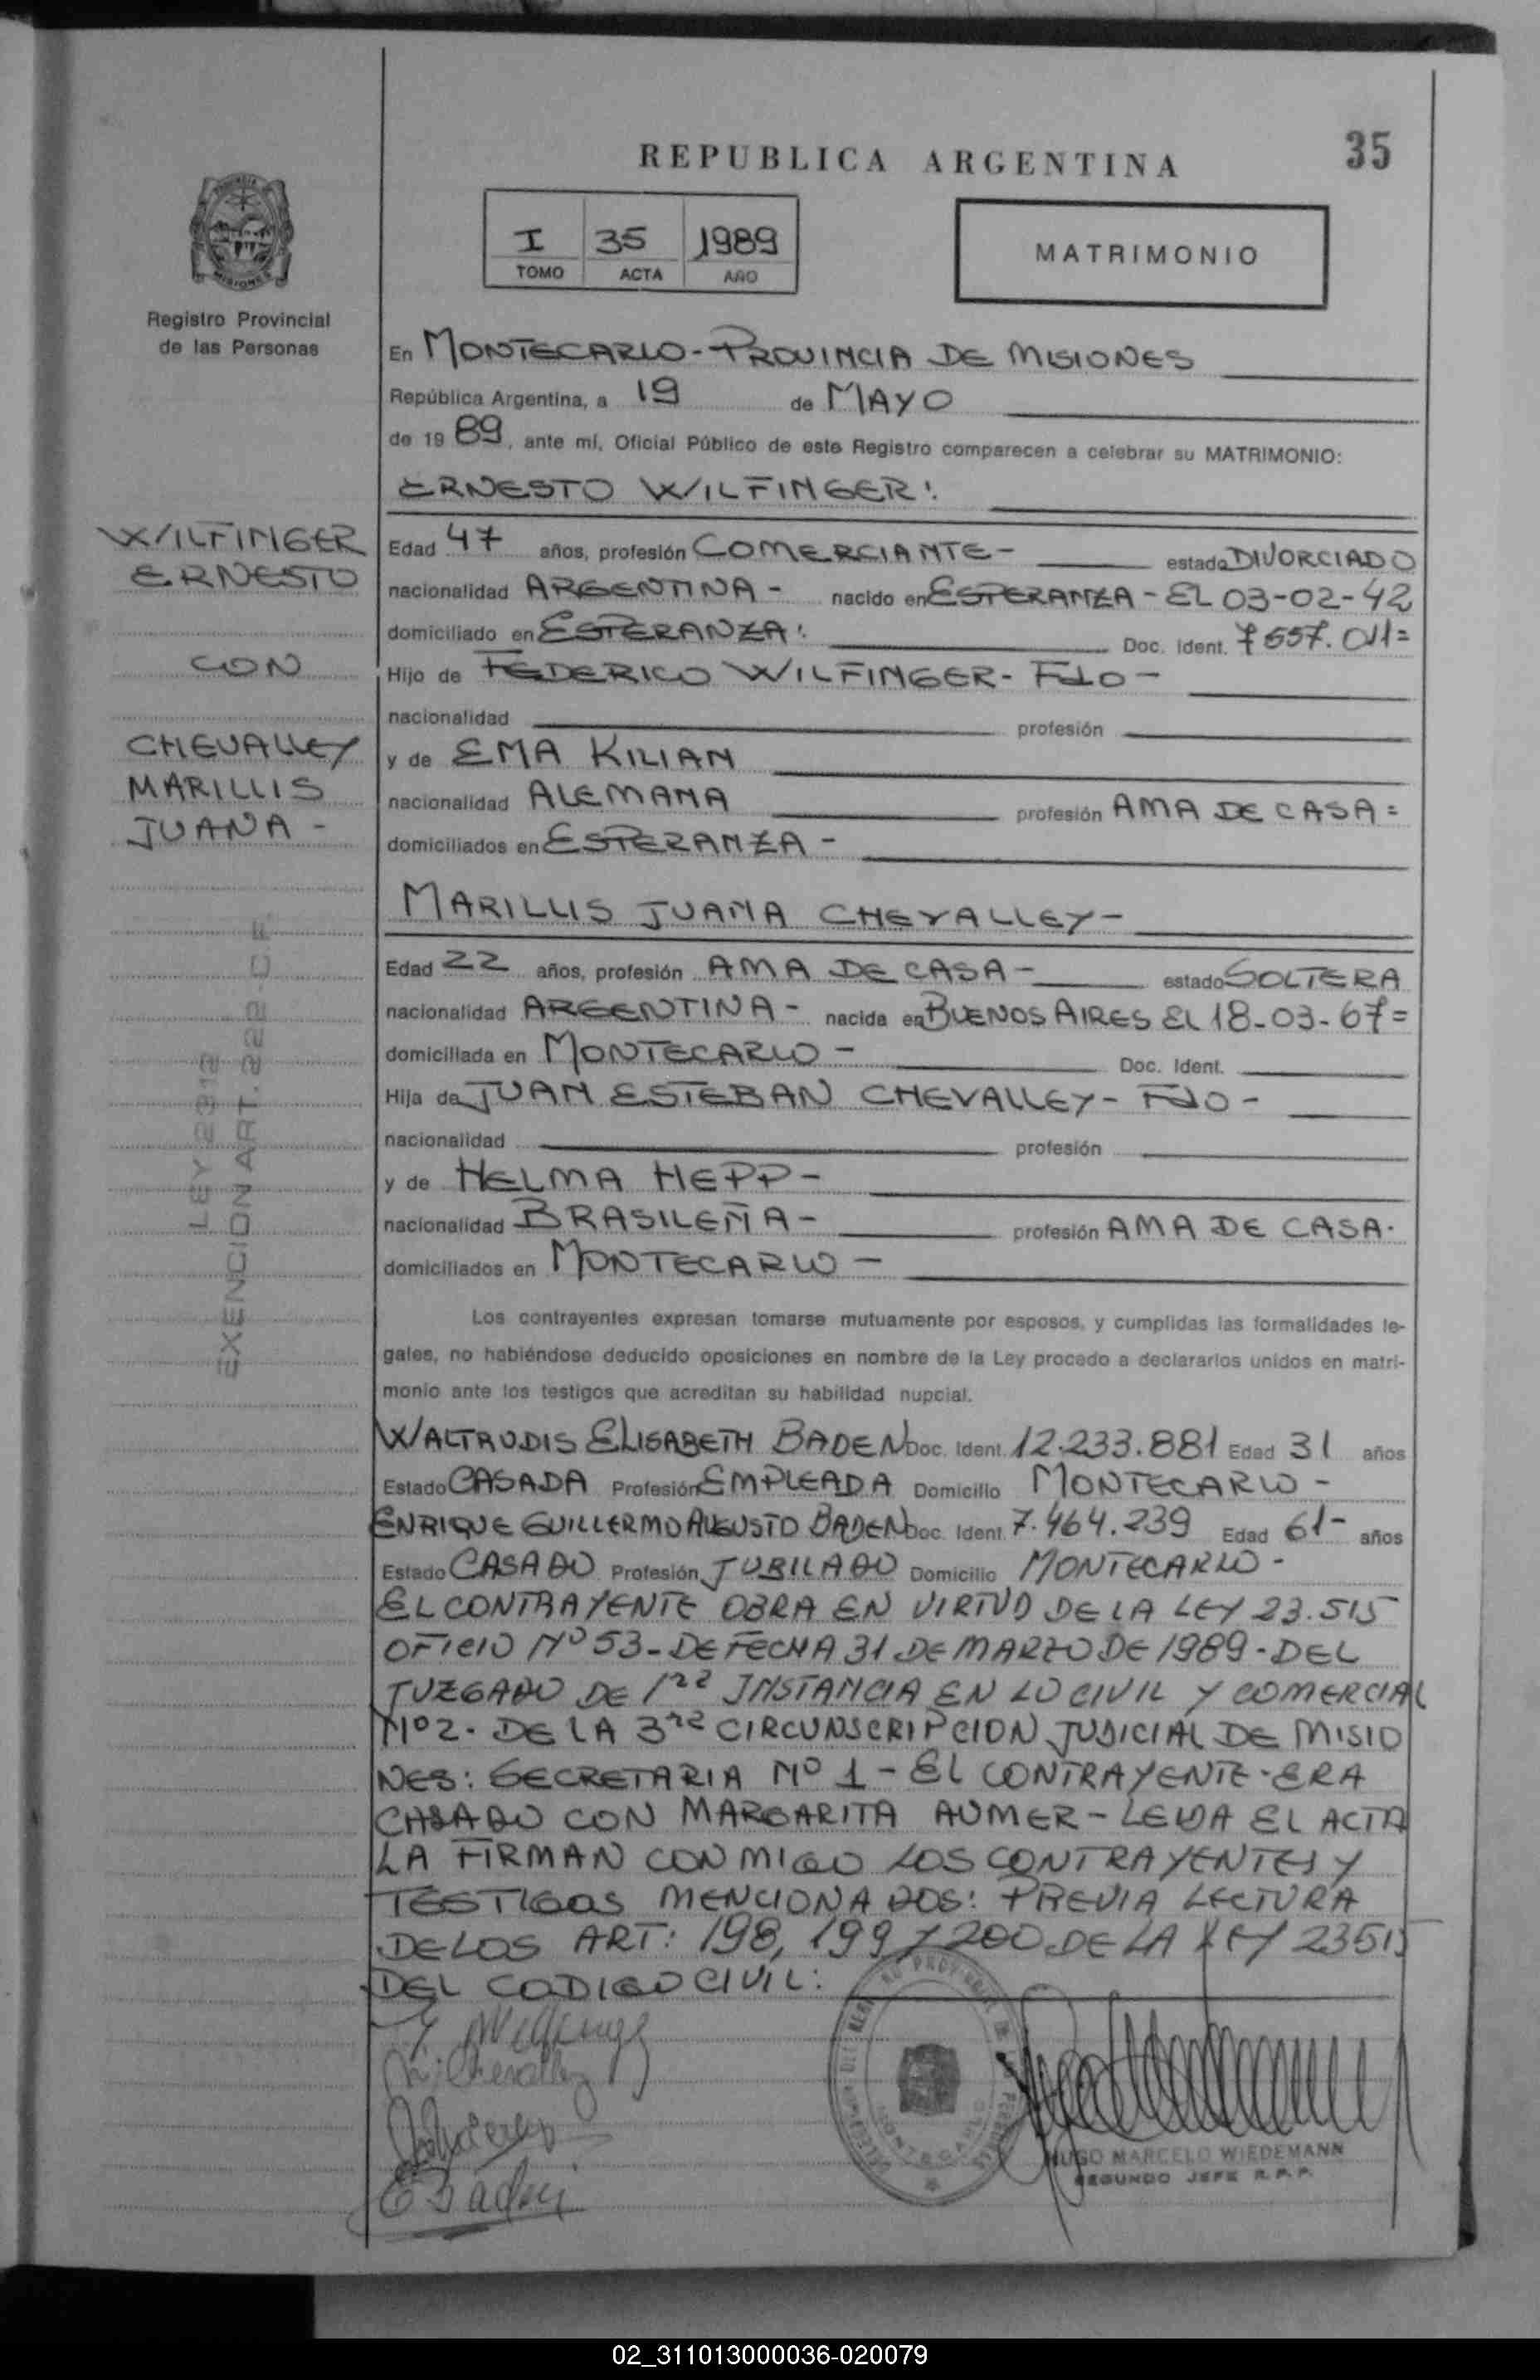 35
REPUBLICA ARGENTINA
I 35 1989
TOMO ACTA AÑO
MATRIMONIO
Registro Provincial
de las Personas
En MONTECARLO - PROVINCIA DE MISIONES
República Argentina, a 19 de MAYO
de 19 89, ante mí, Oficial Público de este Registro comparecen a celebrar su MATRIMONIO:
ERNESTO WILFINGER:
WILFINGER
ERNESTO
CON
CHEVALLEY
MARILLIS
JUANA -
LEY 2312
EXENCION ART. 222 - C F.
Edad 47 años, profesión COMERCIANTE - estado DIVORCIADO
nacionalidad ARGENTINA - nacido en ESPERANZA - EL 03-02-42
domiciliado en ESPERANZA: Doc. Ident. 7557.011=
Hijo de FEDERICO WILFINGER - Fdo -
nacionalidad profesión
y de EMA KILIAN
nacionalidad ALEMANA profesión AMA DE CASA=
domiciliados en ESPERANZA -
MARILLIS JUANA CHEVALLEY -
Edad 22 años, profesión AMA DE CASA - estado SOLTERA
nacionalidad ARGENTINA - nacida en BUENOS AIRES EL 18-03-67=
domiciliada en MONTECARLO - Doc. Ident.
Hija de JUAN ESTEBAN CHEVALLEY - Fdo -
nacionalidad profesión
y de HELMA HEPP -
nacionalidad BRASILEÑA - profesión AMA DE CASA.
domiciliados en MONTECARLO -
Los contrayentes expresan tomarse mutuamente por esposos, y cumplidas las formalidades le-
gales, no habiéndose deducido oposiciones en nombre de la Ley procedo a declararlos unidos en matri-
monio ante los testigos que acreditan su habilidad nupcial.
WALTRUDIS ELISABETH BADEN Doc. Ident. 12.233.881 Edad 31 años
Estado CASADA Profesión EMPLEADA Domicilio MONTECARLO -
ENRIQUE GUILLERMO AUGUSTO BADEN Doc. Ident. 7.464.239 Edad 61- años
Estado CASADO Profesión JUBILADO Domicilio MONTECARLO -
EL CONTRAYENTE OBRA EN VIRTUD DE LA LEY 23.515
OFICIO Nº 53 - DE FECHA 31 DE MARZO DE 1989 - DEL
JUZGADO DE 1ra INSTANCIA EN LO CIVIL Y COMERCIAL
Nº 2 - DE LA 3ra CIRCUNSCRIPCION JUDICIAL DE MISIO
NES: SECRETARIA Nº 1 - EL CONTRAYENTE - ERA
CASADO CON MARGARITA AUMER - LEIDA EL ACTA
LA FIRMAN CONMIGO LOS CONTRAYENTES Y
TESTIGOS MENCIONADOS: PREVIA LECTURA
DE LOS ART: 198, 199 Y 200 DE LA LEY 23515
DEL CODIGO CIVIL:
HUGO MARCELO WIEDEMANN
SEGUNDO JEFE R.P.P.
MONTECARLO
02_311013000036-020079